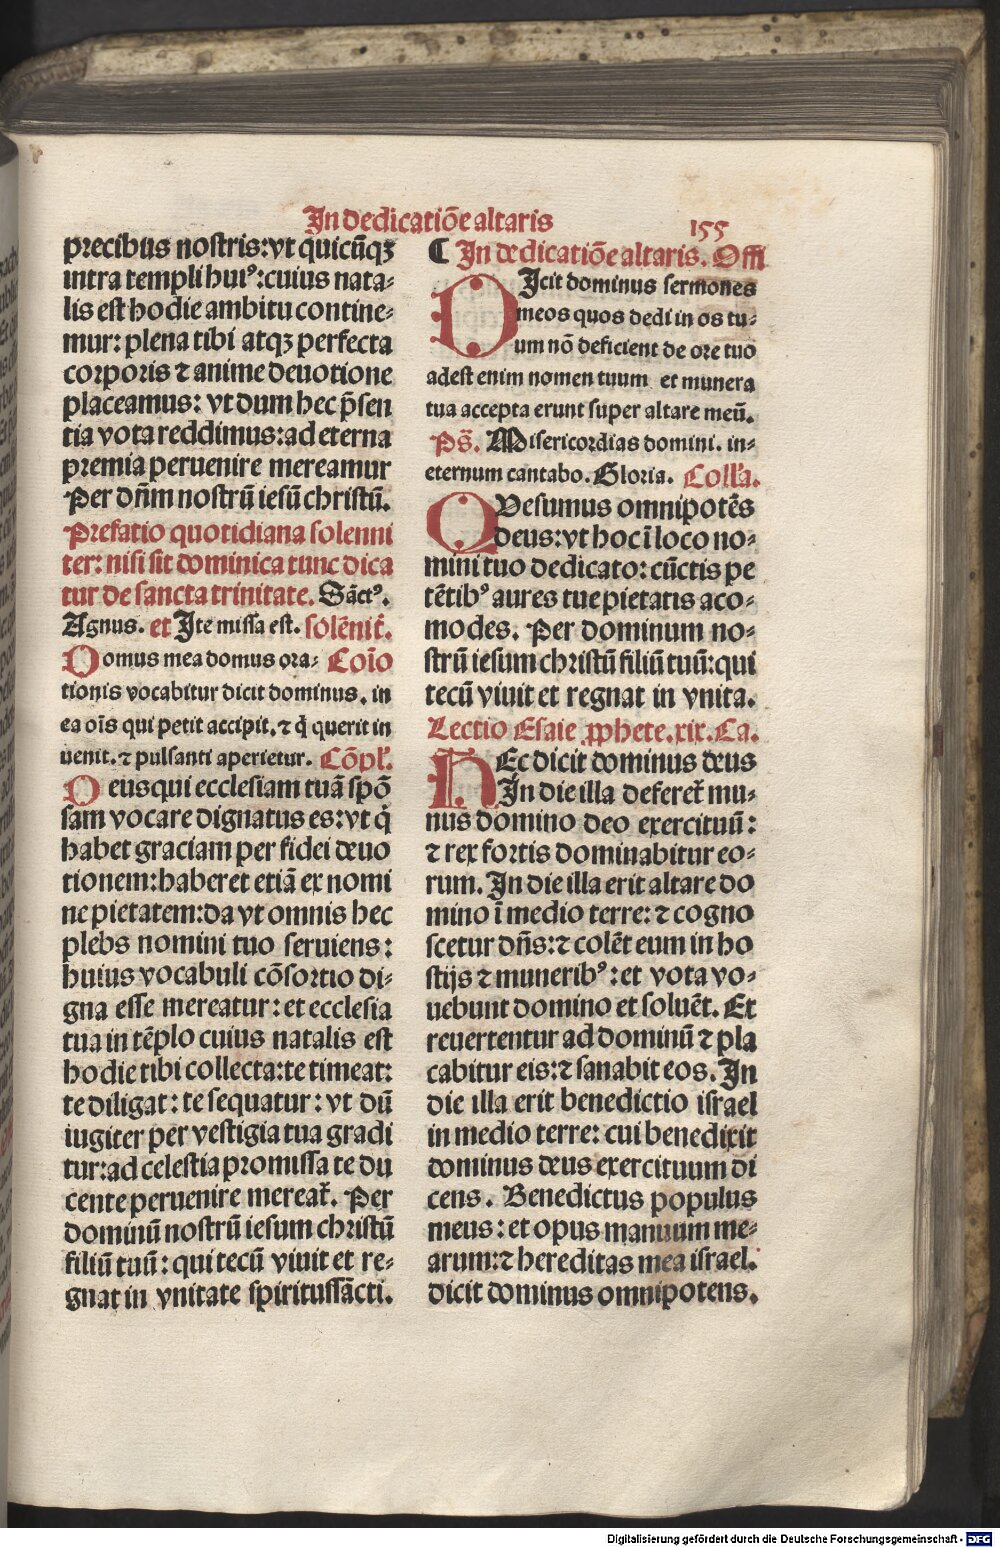 In dedicatiōe altaris 155
precibus nostris:vt quicūqꝫ
intra templi huiꝰ:cuius nata⸗
lis est hodie ambitu contine⸗
mur: plena tibi atqꝫ perfecta
corporis ⁊ anime deuotione
placeamus: vt dum hec p̄sen
tia vota reddimus:ad eterna
premia peruenire mereamur
Per dn̄m nostrū iesū christū.
Prefatio quotidiana solenni
ter: nisi sit dominica tunc dica
tur de sancta trinitate. Sāctꝰ.
Agnus. et Ite missa est. solēnit̄.
Domus mea domus ora⸗ Coīo
tionis vocabitur dicit dominus. in
ea oīs qui petit accipit. ⁊ q̄ querit in
uenit. ⁊ pulsanti aperietur. Cōpl̄.
Deus qui ecclesiam tuā spō
sam vocare dignatus es: vt q̄
habet graciam per fidei deuo
tionem:haberet etiā ex nomi
ne pietatem:da vt omnis hec
plebs nomini tuo seruiens:
huius vocabuli cōsortio di⸗
gna esse mereatur: et ecclesia
tua in tēplo cuius natalis est
hodie tibi collecta:te timeat:
te diligat: te sequatur: vt dū
iugiter per vestigia tua gradi
tur:ad celestia promissa te du
cente peruenire mereat̄. Per
dominū nostrū iesum christū
filiū tuū: qui tecū viuit et re⸗
gnat in vnitate spiritussācti.
¶ In dedicatiōe altaris. Offi
DIcit dominus sermones
meos quos dedi in os tu⸗
um nō deficient de ore tuo
adest enim nomen tuum et munera
tua accepta erunt super altare meū.
Ps̄. Misericordias domini. in⸗
eternum cantabo. Gloria. Coll̄a.
QVesumus omnipotēs
deus:vt hoc ī loco no⸗
mini tuo dedicato: cūctis pe
tētibꝰ aures tue pietatis aco⸗
modes. Per dominum no⸗
strū iesum christū filiū tuū:qui
tecū viuit et regnat in vnita.
Lectio Esaie ꝓphete. xix. Ca.
HEc dicit dominus deus
In die illa deferet̄ mu⸗
nus domino deo exercituū:
⁊ rex fortis dominabitur eo⸗
rum. In die illa erit altare do
mino ī medio terre: ⁊ cogno
scetur dn̄s:⁊ colēt eum in ho
stijs ⁊ muneribꝰ: et vota vo⸗
uebunt domino et soluēt. Et
reuertentur ad dominū ⁊ pla
cabitur eis:⁊ sanabit eos. In
die illa erit benedictio israel
in medio terre: cui benedixit
dominus deus exercituum di
cens. Benedictus populus
meus: et opus manuum me⸗
arum:⁊ hereditas mea israel.
dicit dominus omnipotens.
Digitalisierung gefördert durch die Deutsche Forschungsgemeinschaft - DFG